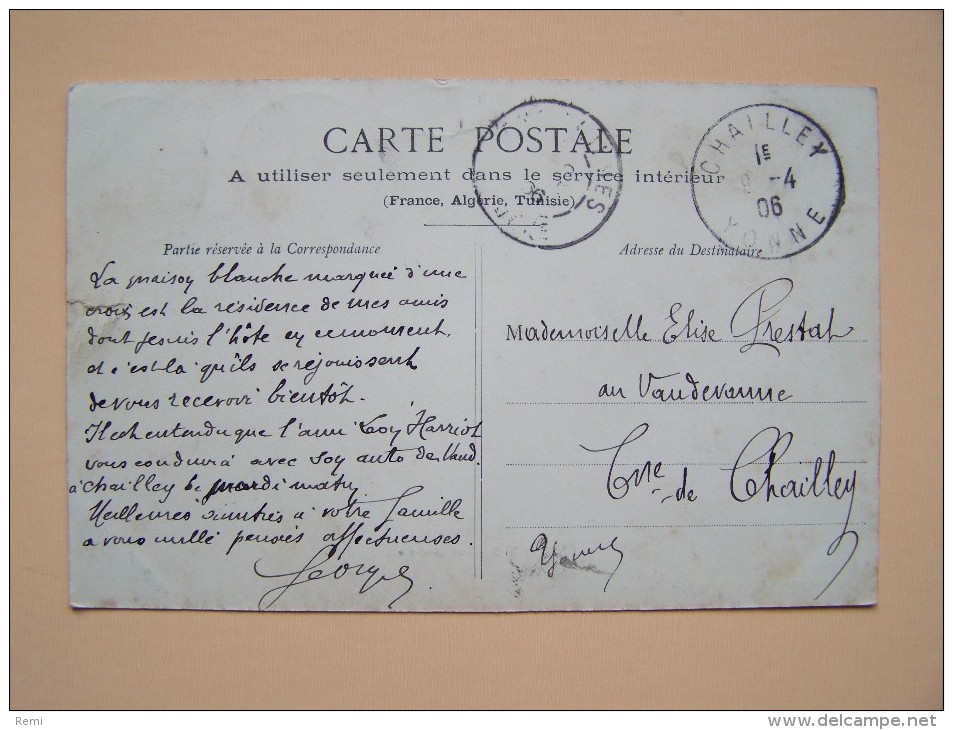 CARTE POSTALE
A utiliser seulement dans le service intérieur
(France, Algérie, Tunisie)
CHAILLEY
1E
-4
06
YONNE
Partie réservée à la Correspondance
La maison blanche marquée d'une
croix est la résidence de mes amis
dont je suis l'hôte en ce moment,
et c'est là qu'ils se réjouissent
de vous recevoir bientôt.
Il est entendu que l'ami Harriot
vous conduira avec son auto de Vaud.
à Chailley le mardi matin
Meilleures à votre famille
a vous mille pensées affectueuses.
Georges
Adresse du Destinataire
Mademoiselle Elise Prestat
au Vaudevanne
Cne de Chailley
Yonne
Remi
www.delcampe.net